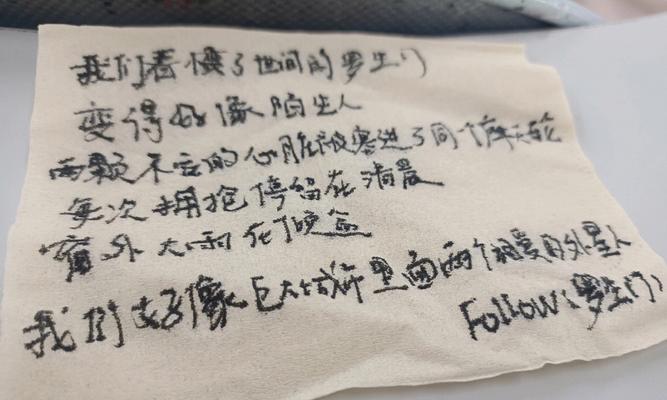 我们看惯了世间的罗生门
变得好像陌生人
两颗不安的心脏被塞进了同个摩天轮
每次拥抱停留在清晨
窗外大雨在倾盆
我们好像巨大城市里面两个相爱的外星人
Follow:(罗生门)